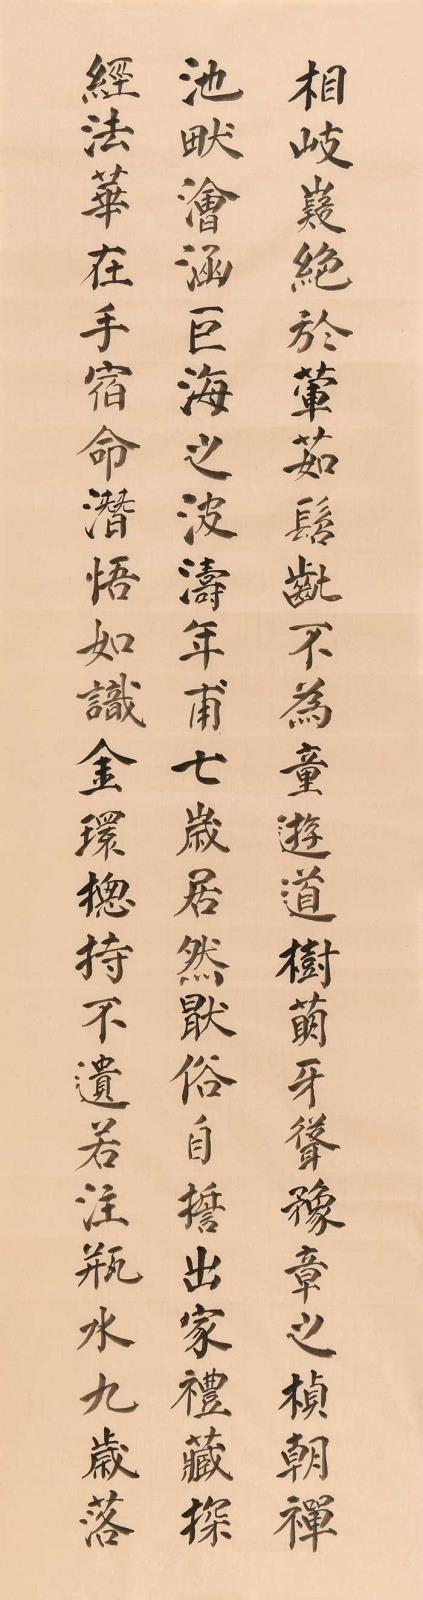 相岐嶷絕於葷茹髫齔不為童遊道樹萌牙聳豫章之楨朝禪
池畎澮涵巨海之波濤年甫七歲居然猒俗自誓出家禮藏探
經法華在手宿命潛悟如識金環摠持不遺若注瓶水九歲落